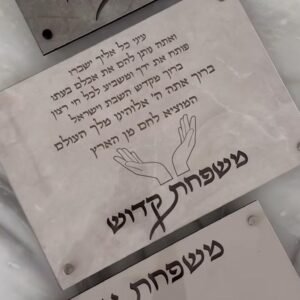 עיני כל אליך ישברו
ואתה נותן להם את אכלם בעתו
פותח את ידך ומשביע לכל חי רצון
ברוך מקדש השבת וישראל
ברוך אתה ה' אלוהינו מלך העולם
המוציא לחם מן הארץ
משפחת קדוש
משפחת